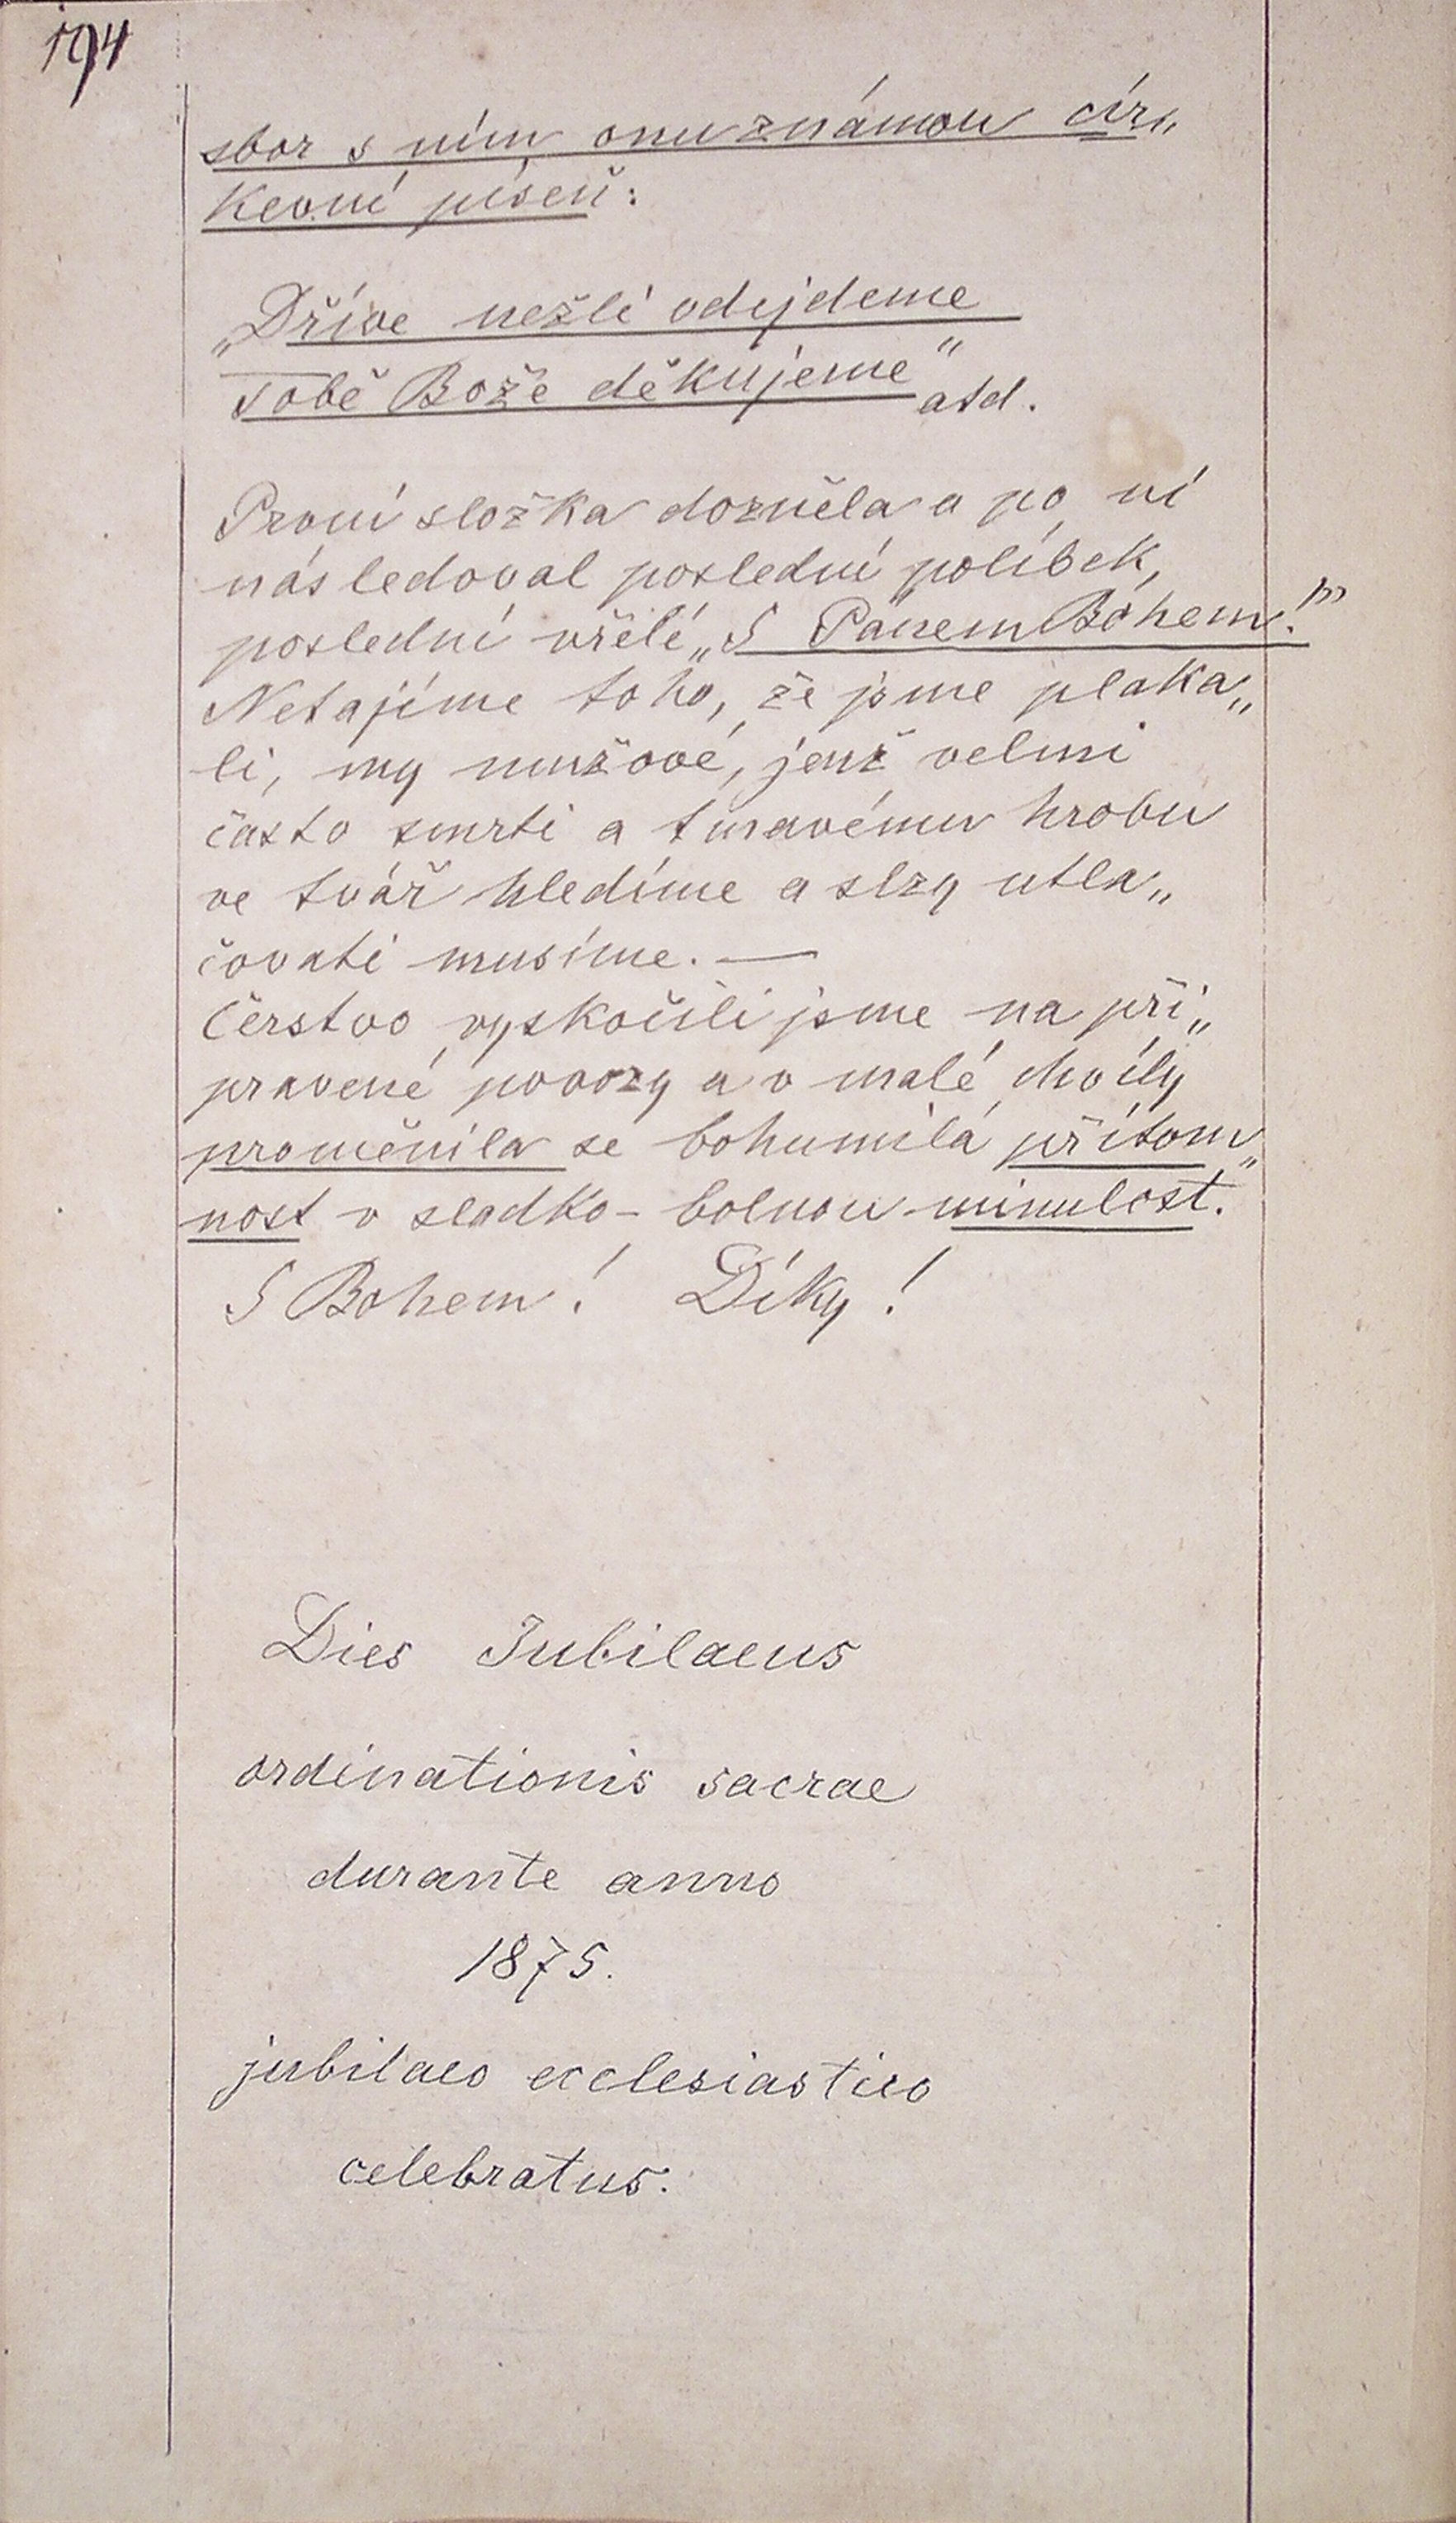 194
sbor s ním onu známou cír„
kevní píseň:
„Dříve nežli odejdeme
Tobě Bože děkujeme“ atd.
První složka dozněla a po ní
následoval poslední políbek,
poslední vřelé „S Pánem Bohem!“
Netajíme toho, že jsme plaka„
li, my mužové, jenž velmi
často smrti a tmavému hrobu
ve tvář hledíme a slzy utla„
čovati musíme. —
Čerstvo vyskočili jsme na při„
pravené povozy a v malé chvíly
proměnila se bohumilá přítom„
nost v sladko-bolnou minulost.
S Bohem! Díky!
Dies Jubilaeus
ordinationis sacrae
durante anno
1875.
jubilaeo ecclesiastico
celebratus.